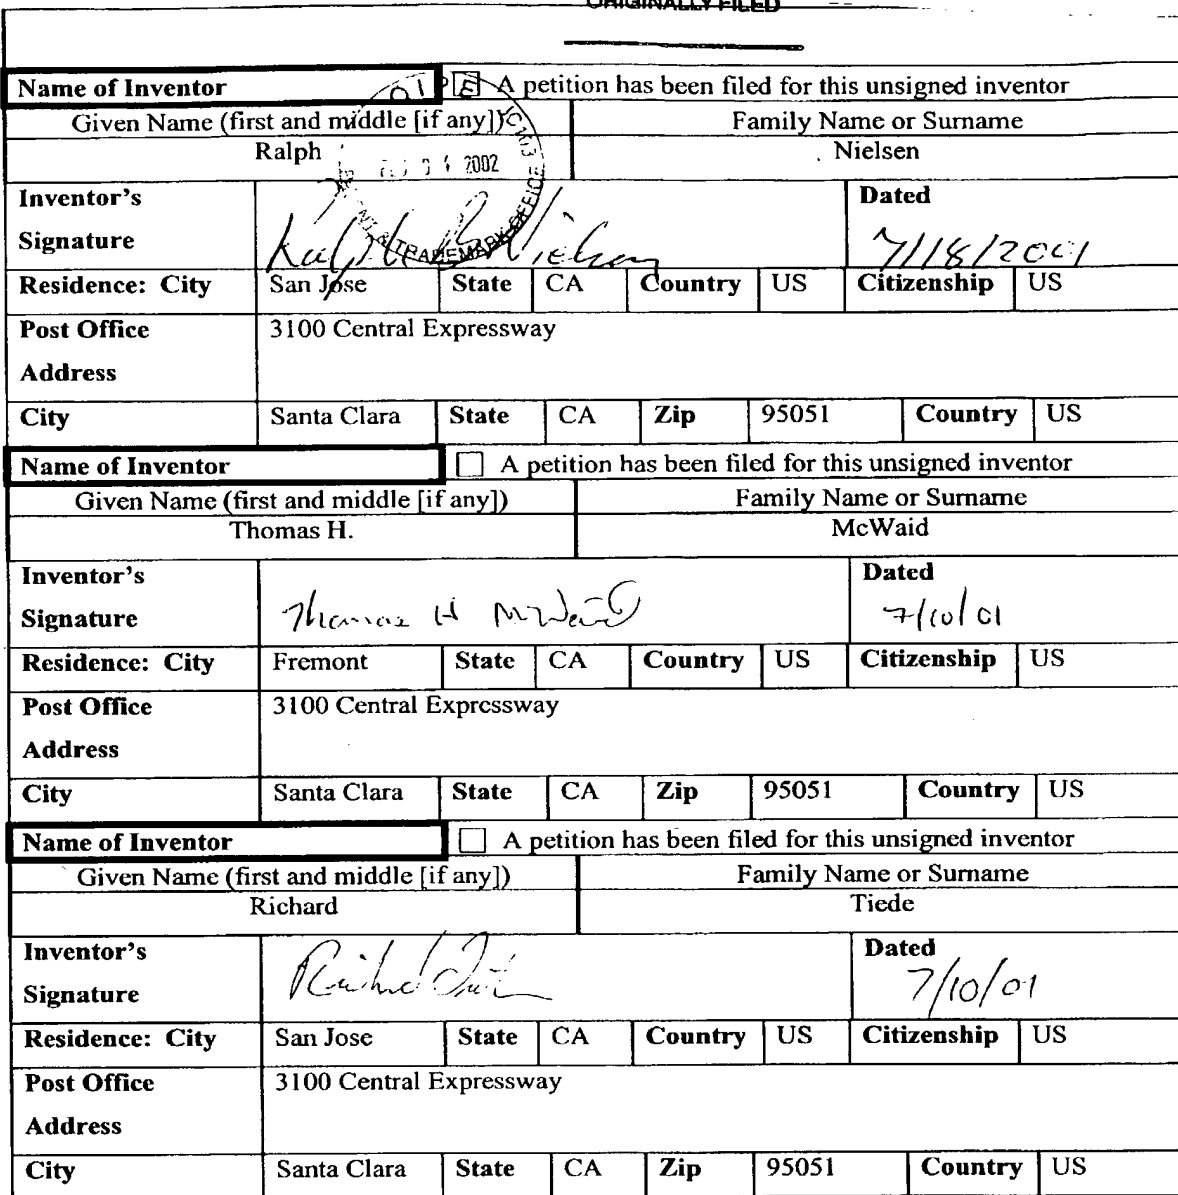 ORIGINALLY FILED
Name of Inventor A petition has been filed for this unsigned inventor
Given Name (first and middle [if any]) Family Name or Surname
Ralph Nielsen
OIPE
JC103
4 2002
& TRADEMARK OFFICE
Inventor's Dated
Signature Ralph B Nielsen 7/18/2001
Residence: City San Jose State CA Country US Citizenship US
Post Office 3100 Central Expressway
Address
City Santa Clara State CA Zip 95051 Country US
Name of Inventor A petition has been filed for this unsigned inventor
Given Name (first and middle [if any]) Family Name or Surname
Thomas H. McWaid
Inventor's Dated
Signature Thomas H McWaid 7/10/01
Residence: City Fremont State CA Country US Citizenship US
Post Office 3100 Central Expressway
Address
City Santa Clara State CA Zip 95051 Country US
Name of Inventor A petition has been filed for this unsigned inventor
Given Name (first and middle [if any]) Family Name or Surname
Richard Tiede
Inventor's Dated
Signature Richard Tiede 7/10/01
Residence: City San Jose State CA Country US Citizenship US
Post Office 3100 Central Expressway
Address
City Santa Clara State CA Zip 95051 Country US